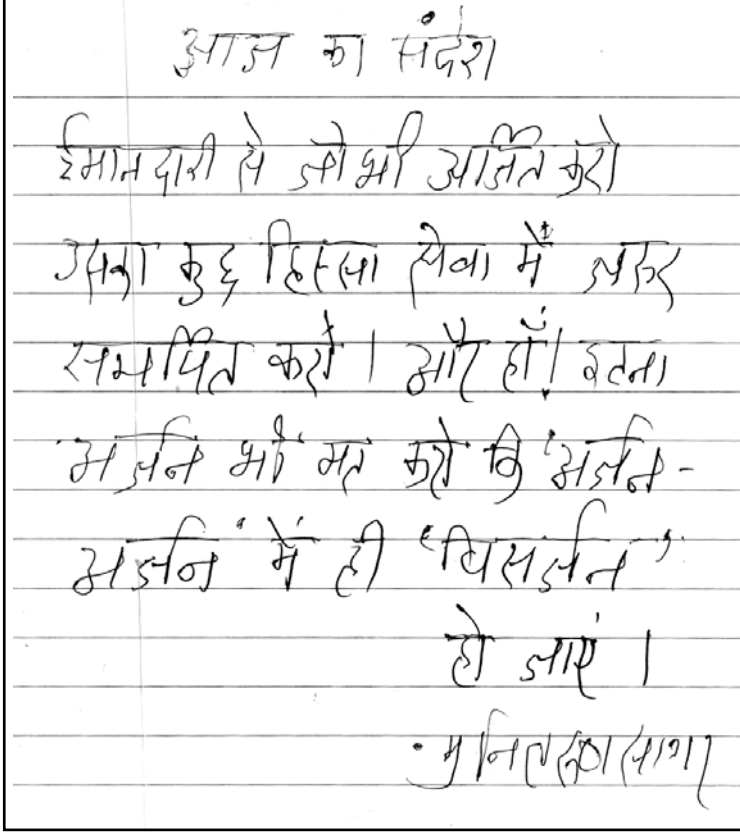 आज का संदेश
ईमानदारी से जो भी अर्जित करो
उसका कुछ हिस्सा सेवा में जरुर
समर्पित करो । और हाँ! इतना
अर्जन भी मत करो कि 'अर्जन-
अर्जन' में ही 'विसर्जन'
हो जाएं ।
• मुनि तरुणसागर